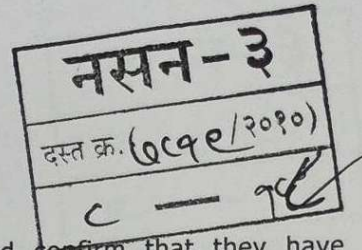 नसन-३
दस्त क्र. (७८१९/२०१०)
८ —
confirm that they have